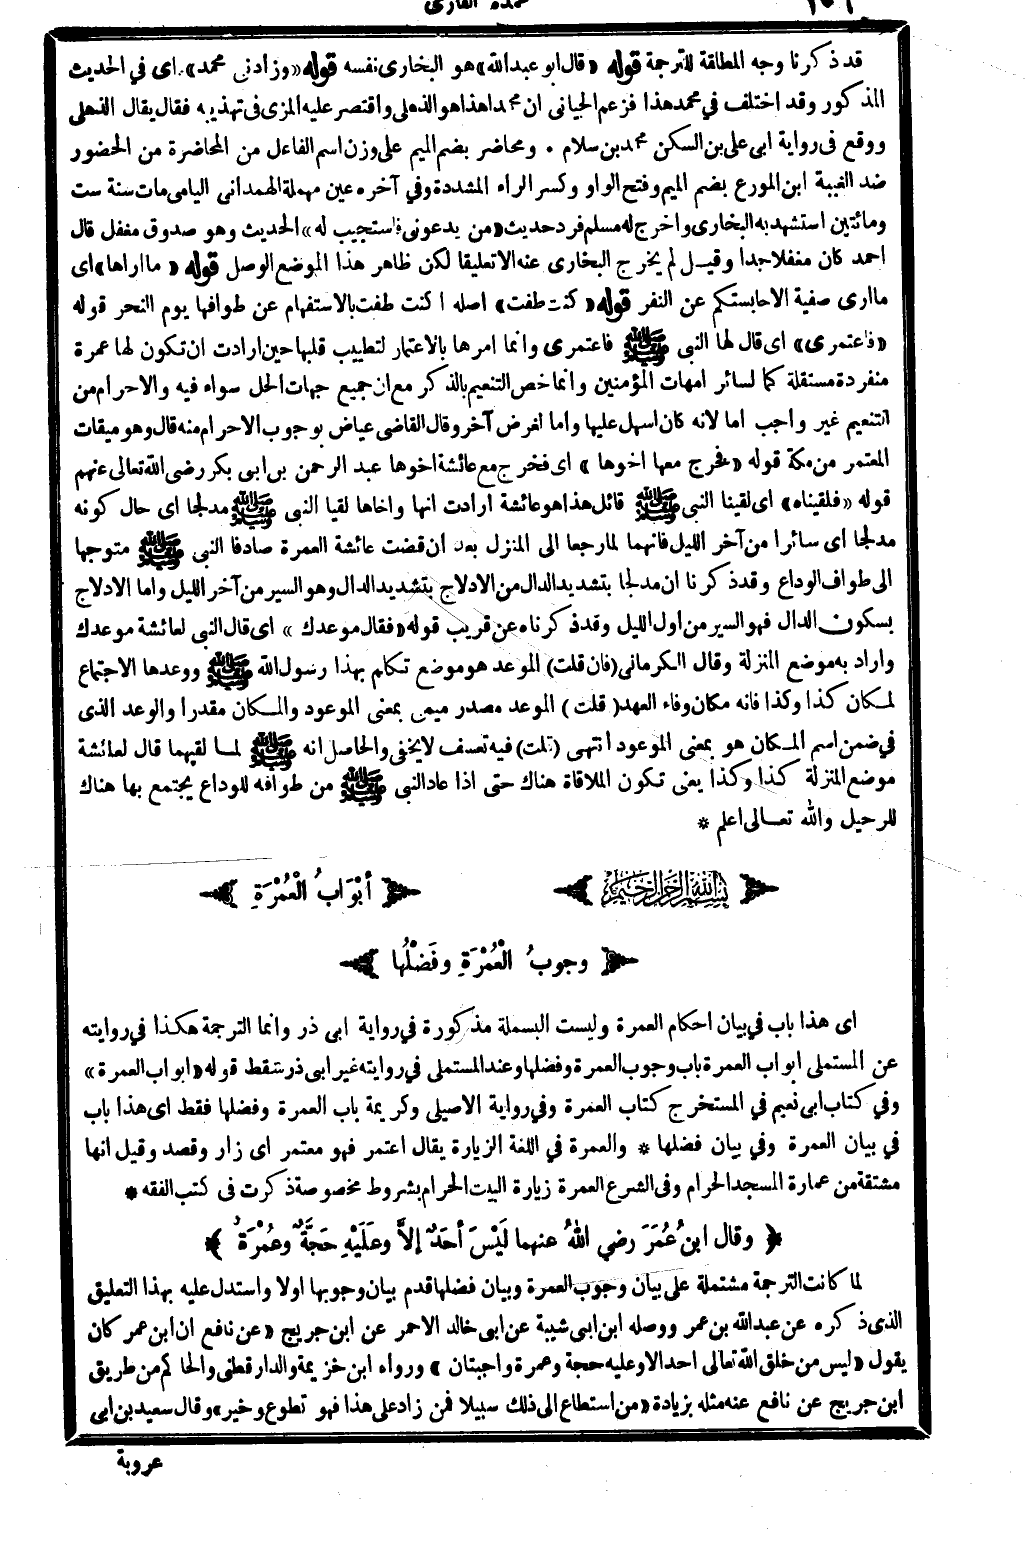 عمدة القاري
قد ذكرنا وجه المطابقة للترجمة قوله «قال ابو عبدالله» هو البخارى نفسه قوله «وزادنى محمد» اى في الحديث
المذكور وقد اختلف في محمد هذا فزعم الجيانى ان محمدا هذا هو الذهلى واقتصر عليه المزى فى تهذيبه فقال يقال الذهلى
ووقع فى رواية ابى على بن السكن محمد بن سلام . ومحاضر بضم الميم على وزن اسم الفاعل من المحاضرة من الحضور
ضد الغيبة ابن المورع بضم الميم وفتح الواو وكسر الراء المشددة وفي آخره عين مهملة الهمدانى اليامى مات سنة ست
ومائتين استشهد به البخارى واخرج له مسلم فرد حديث «من يدعونى فاستجيب له» الحديث وهو صدوق مغفل قال
احمد كان مغفلا جدا وقيل لم يخرج البخارى عنه الا تعليقا لكن ظاهر هذا الموضع الوصل قوله «ما اراها» اى
ما ارى صفية الا حابستكم عن النفر قوله «كنت طفت» اصله ا كنت طفت بالاستفهام عن طوافها يوم النحر قوله
«فاعتمرى» اى قال لها النبى ﷺ فاعتمرى وانما امرها بالاعتمار لتطييب قلبها حين ارادت ان تكون لها عمرة
منفردة مستقلة كما لسائر امهات المؤمنين وانما خص التنعيم بالذكر مع ان جميع جهات الحل سواء فيه والاحرام من
التنعيم غير واجب اما لانه كان اسهل عليها واما لغرض آخر وقال القاضى عياض بوجوب الاحرام منه قال وهو ميقات
المعتمر من مكة قوله «فخرج معها اخوها» اى فخرج مع عائشة اخوها عبد الرحمن بن ابى بكر رضى الله تعالى عنهم
قوله «فلقيناه» اى لقينا النبى ﷺ قائل هذا هو عائشة ارادت انها واخاها لقيا النبى ﷺ مدلجا اى حال كونه
مدلجا اى سائرا من آخر الليل فانهما لما رجعا الى المنزل بعد ان قضت عائشة العمرة صادفا النبى ﷺ متوجها
الى طواف الوداع وقد ذكرنا ان مدلجا بتشديد الدال من الادلاج بتشديد الدال وهو السير من آخر الليل واما الادلاج
بسكون الدال فهو السير من اول الليل وقد ذكرناه عن قريب قوله «فقال موعدك» اى قال النبى لعائشة موعدك
واراد به موضع المنزلة وقال الكرمانى (فان قلت) الموعد هو موضع تكلم بهذا رسول الله ﷺ ووعدها الاجتماع
لمكان كذا وكذا فانه مكان وفاء العهد (قلت) الموعد مصدر ميمى بمعنى الموعود والمكان مقدرا والوعد الذى
في ضمن اسم المكان هو بمعنى الموعود انتهى (قلت) فيه تعسف لا يخفى والحاصل انه ﷺ لما لقيهما قال لعائشة
موضع المنزلة كذا وكذا يعنى تكون الملاقاة هناك حتى اذا عاد النبى ﷺ من طوافه للوداع يجتمع بها هناك
للرحيل والله تعالى اعلم *
بسم الله الرحمن الرحيم أبْوَابُ الْعُمْرَةِ
وجوبُ الْعُمْرَةِ وفَضْلُها
اى هذا باب في بيان احكام العمرة وليست البسملة مذكورة في رواية ابى ذر وانما الترجمة هكذا في روايته
عن المستملى ابواب العمرة باب وجوب العمرة وفضلها وعند المستملى في روايته غير ابى ذر سقط قوله «ابواب العمرة»
وفي كتاب ابى نعيم في المستخرج كتاب العمرة وفي رواية الاصيلى وكريمة باب العمرة وفضلها فقط اى هذا باب
في بيان العمرة وفي بيان فضلها * والعمرة في اللغة الزيارة يقال اعتمر فهو معتمر اى زار وقصد وقيل انها
مشتقة من عمارة المسجد الحرام وفى الشرع العمرة زيارة البيت الحرام بشروط مخصوصة ذكرت فى كتب الفقه *
﴿ وقال ابنُ عُمَرَ رضي اللهُ عنهما لَيْسَ أحَدٌ إلاَّ وعَلَيْهِ حَجَّةٌ وعُمْرَةٌ ﴾
لما كانت الترجمة مشتملة على بيان وجوب العمرة وبيان فضلها قدم بيان وجوبها اولا واستدل عليه بهذا التعليق
الذى ذكره عن عبدالله بن عمر ووصله ابن ابى شيبة عن ابى خالد الاحمر عن ابن جريج «عن نافع ان ابن عمر كان
يقول «ليس من خلق الله تعالى احد الا وعليه حجة وعمرة واجبتان» ورواه ابن خزيمة والدارقطنى والحاكم من طريق
ابن جريج عن نافع عنه مثله بزيادة «من استطاع الى ذلك سبيلا فمن زاد على هذا فهو تطوع وخير» وقال سعيد بن ابى
عروبة